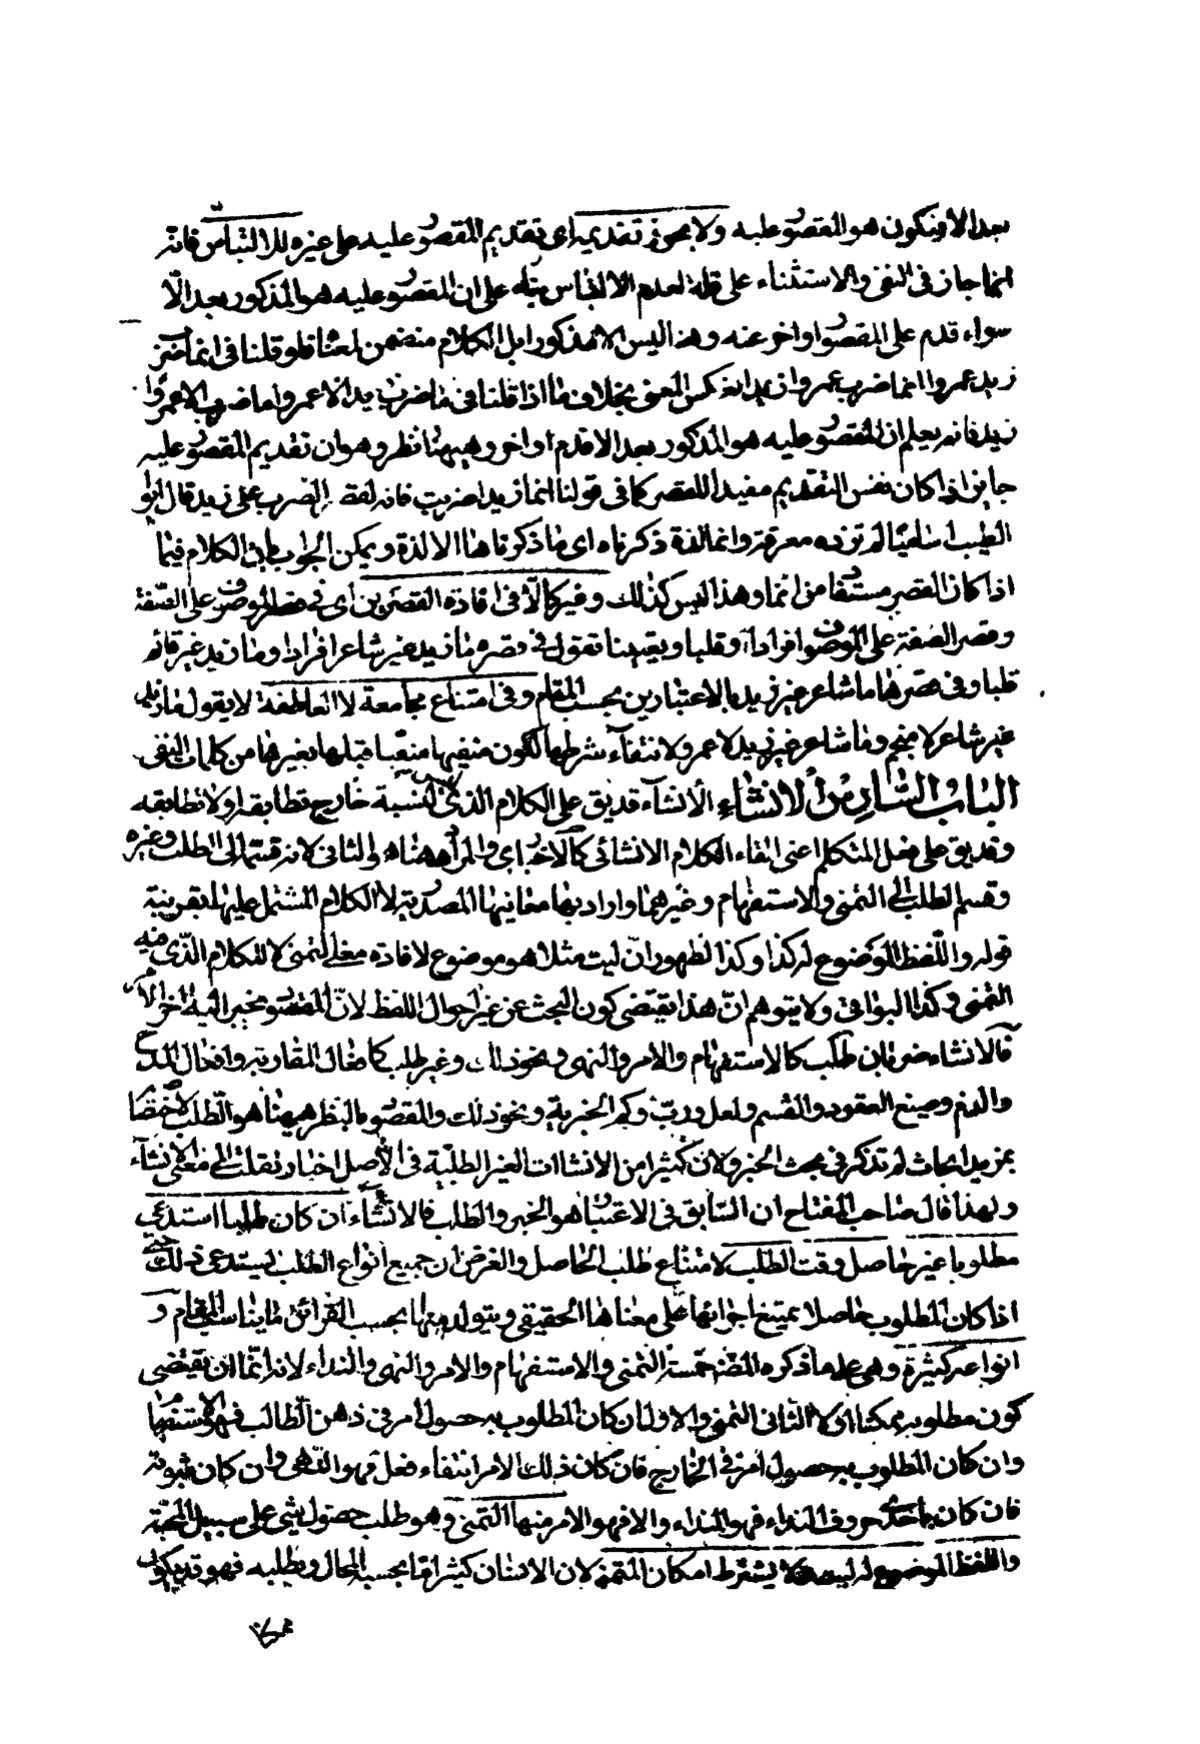 بعد الا فيكون هو المقصور عليه ولا يجوز تقديمه اى تقديم المقصور عليه على غيره للالتباس فانه
انما جاز فى النفى والاستثناء على قلة لعدم الالتباس بناء على ان المقصور عليه هو المذكور بعد الا
سواء قدم على المقصور او اخر عنه وهذا ليس الا مذكورا بل الكلام متضمن لمعناه فلو قلنا فى انما ضرب
زيد عمروا انما ضرب عمروا زيد انعكس المعنى بخلاف ما اذا قلنا فى ما ضرب زيد الا عمروا ما ضرب الا عمروا
زيد فانه يعلم ان المقصور عليه هو المذكور بعد الا قدم او اخر وههنا نظر وهو ان تقديم المقصور عليه
جايز اذا كان نفس التقديم مفيدا للقصر كما فى قولنا انما زيدا ضربت فانه لقصر الضرب على زيد قال ابو
الطيب اساميا لم تزده معرفة وانما لذة ذكرناه اى ما ذكرناها الا لذة ويمكن الجواب بان الكلام فيما
اذا كان القصر مستفادا من انما وهذا ليس كذلك وغير كالا فى افادة القصرين اى فى قصر الموصوف على الصفة
وقصر الصفة على الموصوف افرادا وقلبا وتعيينا تقول فى قصره ما زيد غير شاعر افرادا وما زيد غير قائم
قلبا وفى قصرها ما شاعر غير زيد بالاعتبارين بحسب المقام وفى امتناع مجامعة لا العاطفة لا يقول ما زيد
غير شاعر لا منجم وما شاعر غير زيد لا عمرو لانتفاء شرطها لكون منفيها منفيا قبلها بغيرها من كلمات النفى
الباب السادس الانشاء الانشاء قد يق على الكلام الذى ليس لنسبته خارج تطابقه او لا تطابقه
وقد يق على فعل المتكلم اعنى القاء الكلام الانشائى كالاخبار والمراد ههنا هو الثانى لانه قسمه الى الطلب وغيره
وقسم الطلب الى التمنى والاستفهام وغيرهما واراد بها معانيها المصدرية لا الكلام المشتمل عليها بقرينة
قوله واللفظ الموضوع له كذا وكذا لظهور ان ليت مثلا هو موضوع لافادة معنى التمنى لا للكلام الذى فيه
التمنى وكذا البواقى ولا يتوهم ان هذا يقتضى كون البحث عن غير احوال اللفظ لان المقصود ينجر اليه اخر الامر
فالانشاء ضربان طلب كالاستفهام والامر والنهى ونحو ذلك وغير طلب كافعال المقاربة وافعال المدح
والذم وصيغ العقود والقسم ولعل ورب وكم الخبرية ونحو ذلك والمقصود بالنظر ههنا هو الطلب لاختصاصه
بمزيد ابحاث لم تذكر فى بحث الخبر ولان كثيرا من الانشاات الغير الطلبية فى الاصل اخبار نقلت الى معنى الانشاء
ولهذا قال صاحب المفتاح ان السابق فى الاعتبار هو الخبر والطلب فالانشاء ان كان طلبا استدعى
مطلوبا غير حاصل وقت الطلب لامتناع طلب الحاصل والغرض ان جميع انواع الطلب يستدعى ذلك حتى
اذا كان المطلوب حاصلا يمتنع اجرائها على معناها الحقيقى ويتولد منها بحسب القرائن ما يناسب المقام و
انواعه كثيرة وهى على ما ذكره المص خمسة التمنى والاستفهام والامر والنهى والنداء لانه اما ان يقتضى
كون مطلوبه ممكنا او لا الثانى التمنى والاول ان كان المطلوب به حصول امر فى ذهن الطالب فهو الاستفهام
وان كان المطلوب به حصول امر فى الخارج فان كان ذلك الامر انتفاء فعل فهو النهى وان كان ثبوته
فان كان باحد حروف النداء فهو النداء والا فهو الامر منها التمنى وهو طلب حصول شئ على سبيل المحبة
واللفظ الموضوع له ليت ولا يشترط امكان المتمنى لان الانسان كثيرا ما بحسب المحال ويطلبه فهو قد يكون
ممكنا